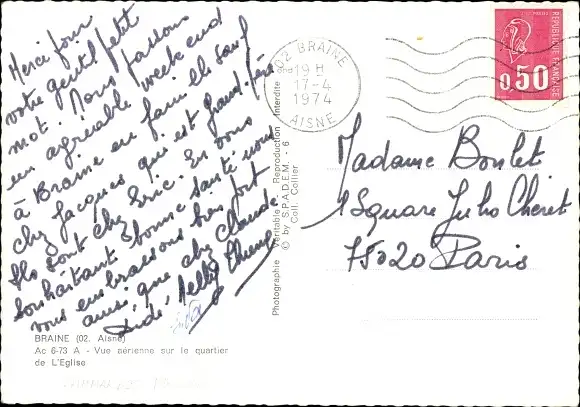 Merci pour
votre gentil petit
mot. Nous passons
un agréable week end
à Braine en famille sauf
chez Jacques qui est grand-père
Ils sont chez Eric. En vous
souhaitant bonne santé nous
vous embrassons bien fort
ainsi que chez Claude
Dédé, Nelly
BRAINE (02. Aisne)
Ac 6-73 A - Vue aérienne sur le quartier
de L'Eglise
Photographie Véritable - Reproduction Interdite
© by S.P.A.D.E.M. - 6
Coll. Cellier
02 BRAINE
19H
17-4
1974
AISNE
REPUBLIQUE FRANÇAISE
0,50
Madame Boulet
1 Square Jules Cheret
75020 Paris